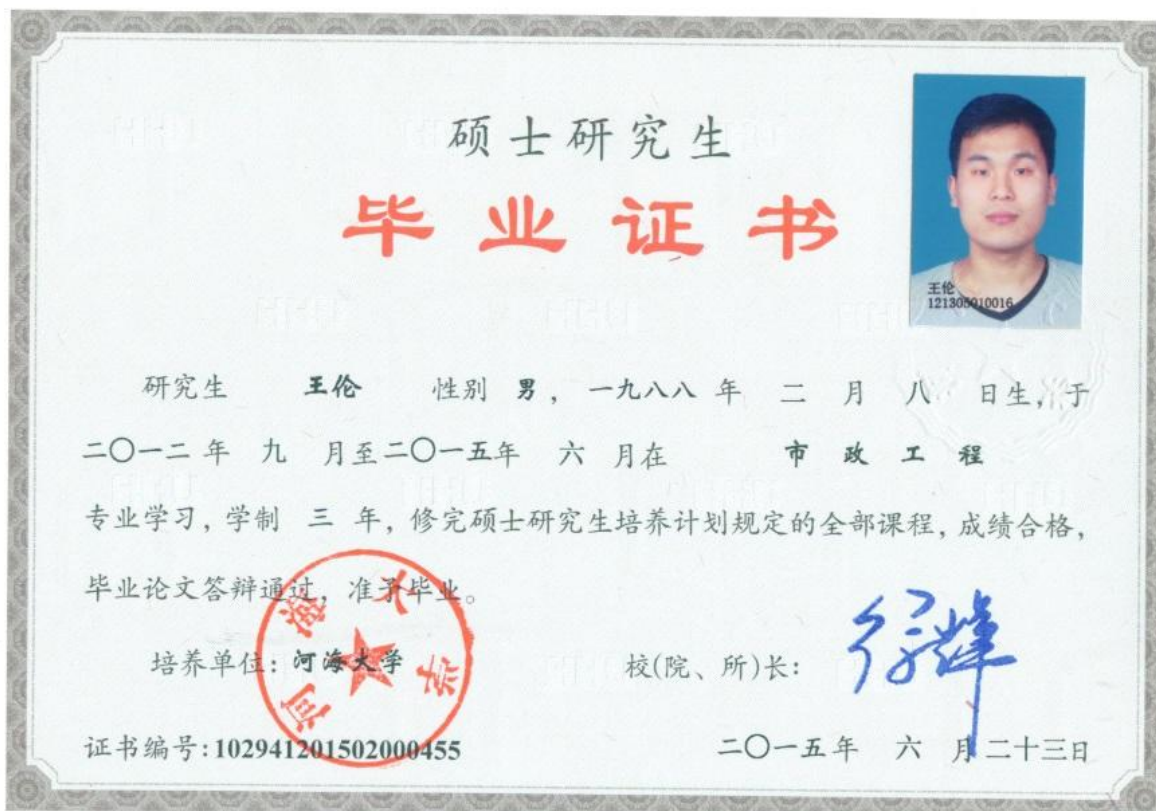 硕士研究生
毕业证书
王伦
121305010016
研究生 王伦 性别 男，一九八八 年 二 月 八 日生，于
二〇一二 年 九 月至二〇一五年 六 月在 市政工程
专业学习，学制 三 年，修完硕士研究生培养计划规定的全部课程，成绩合格，
毕业论文答辩通过，准予毕业。
河海大学
培养单位：河海大学 校(院、所)长：
证书编号：102941201502000455 二〇一五年 六 月二十三日